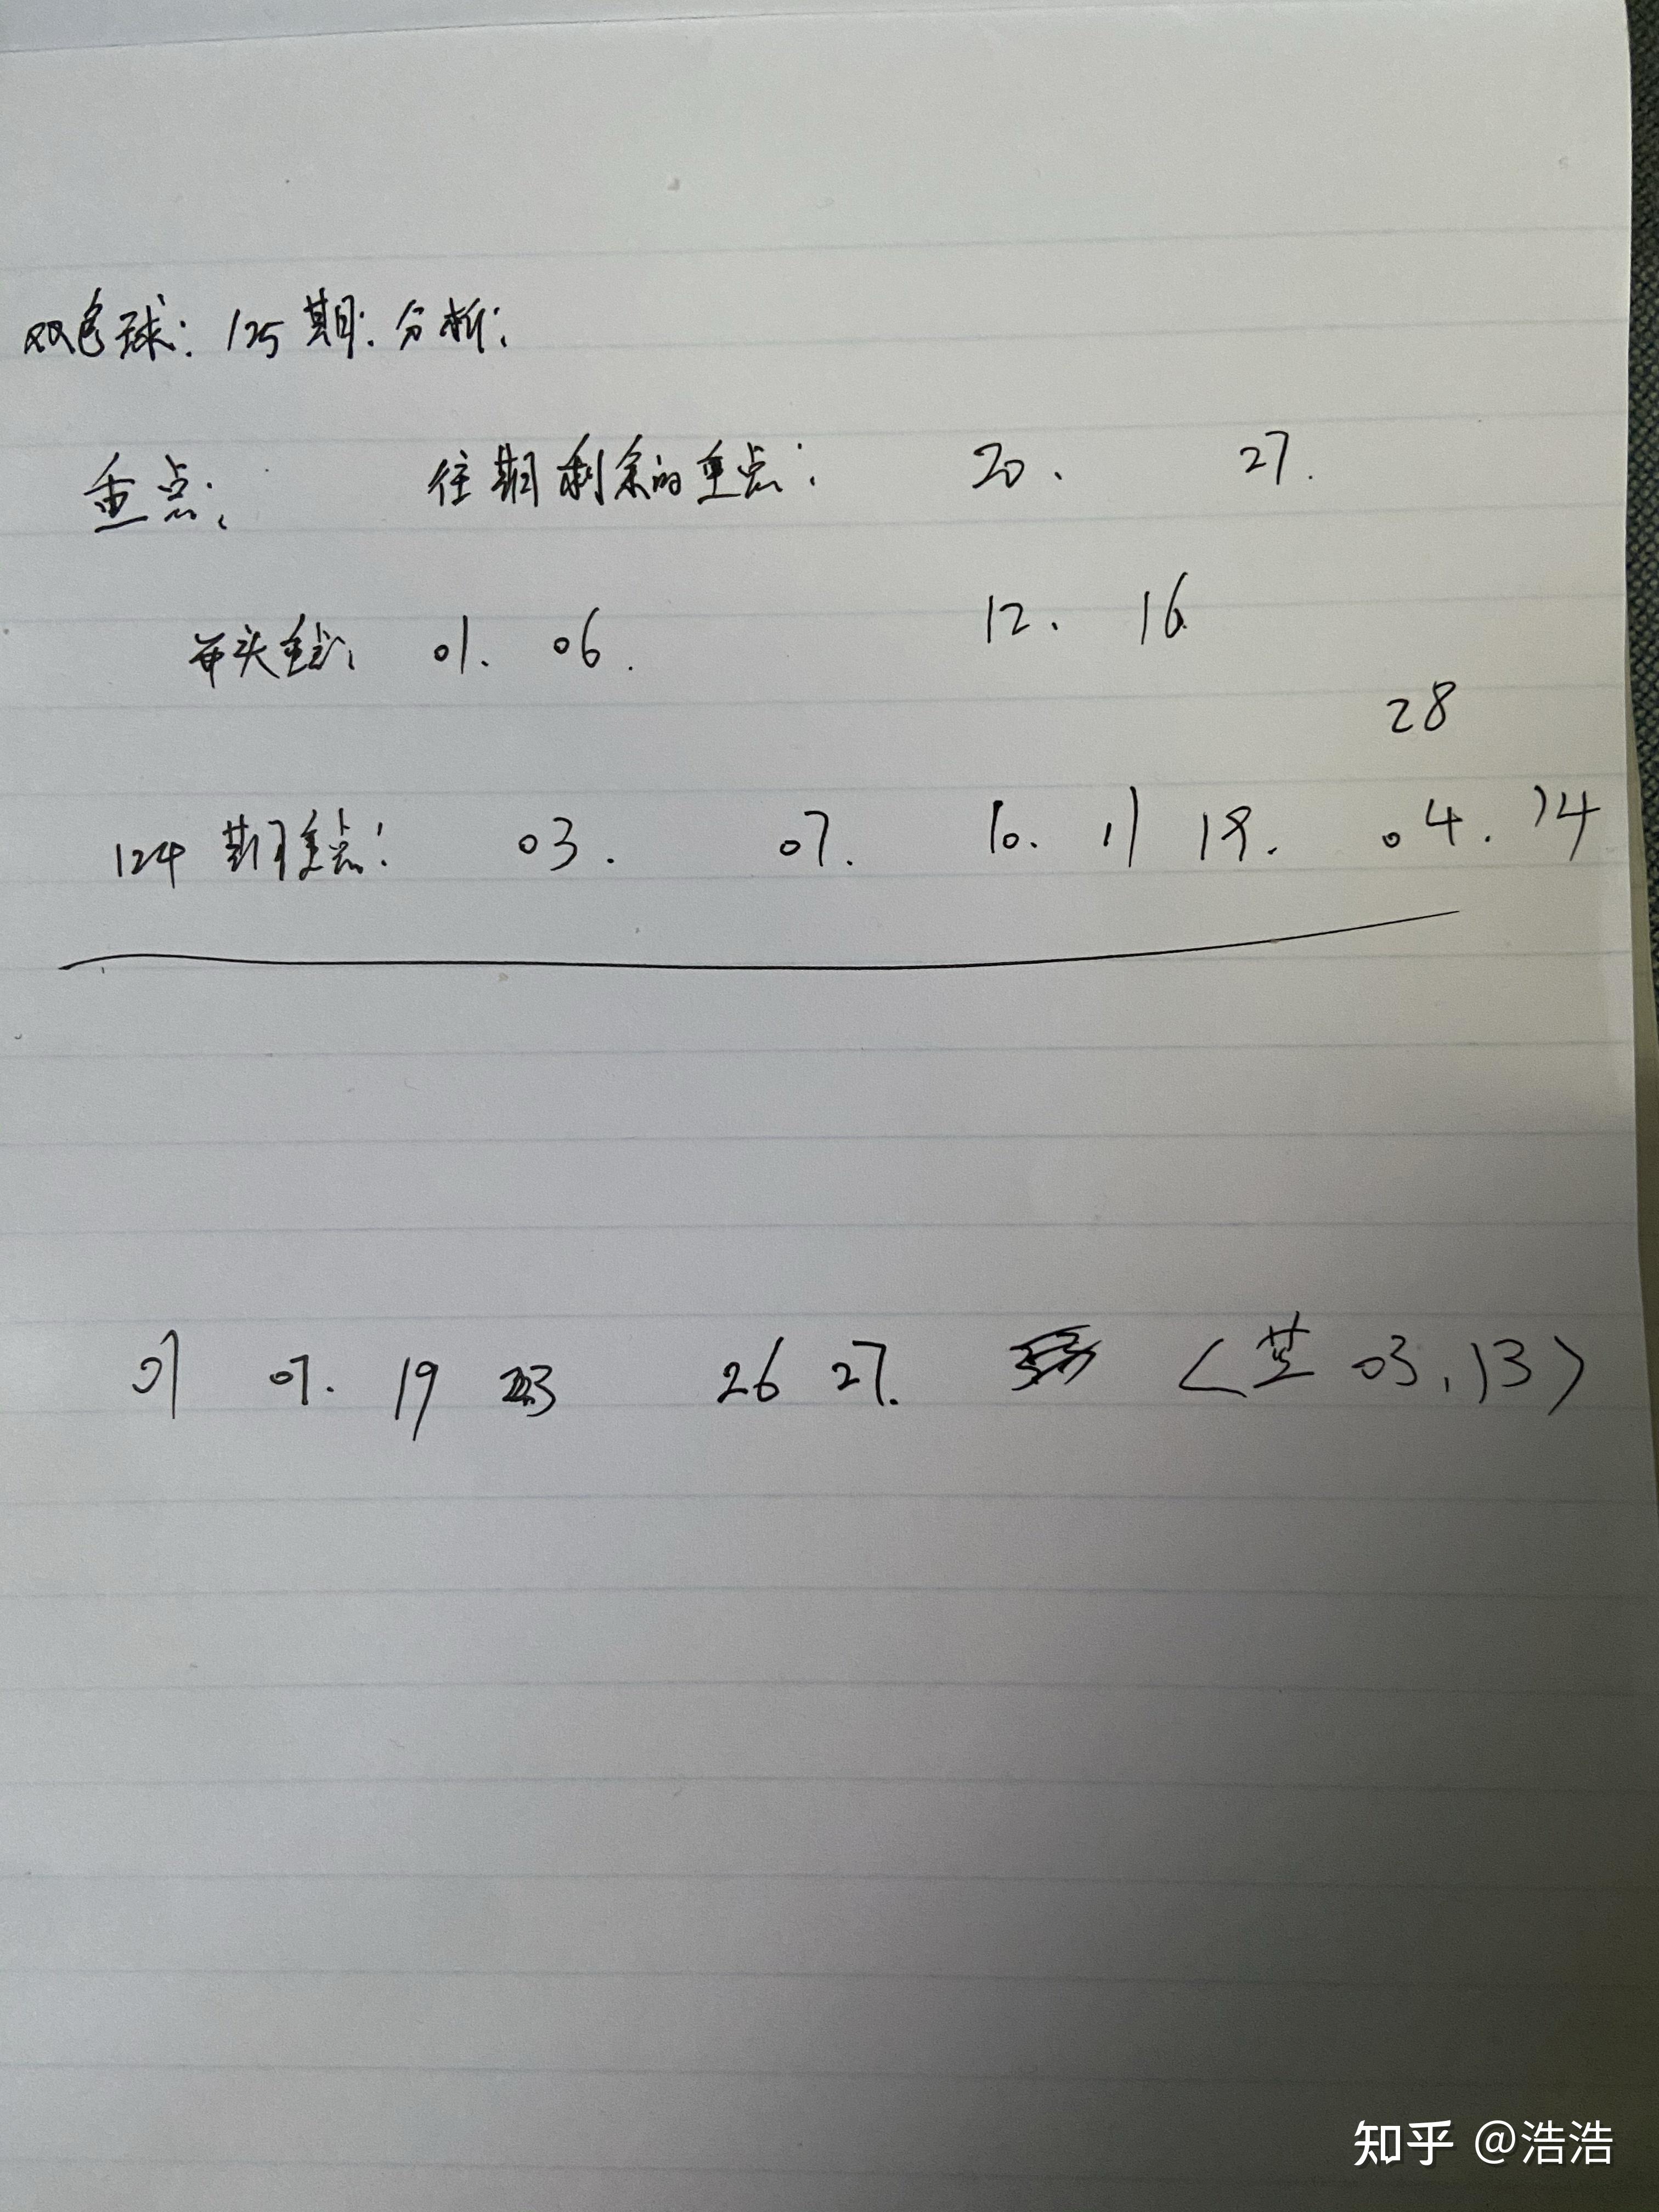 双色球: 125期: 分析:
重点: 往期剩余的重点: 20. 27.
带头重点: 01. 06. 12. 16
28
124期重点: 03. 07. 10. 11 19. 04. 14
01 07. 19 23 26 27. (蓝 03, 13)
知乎 @浩浩